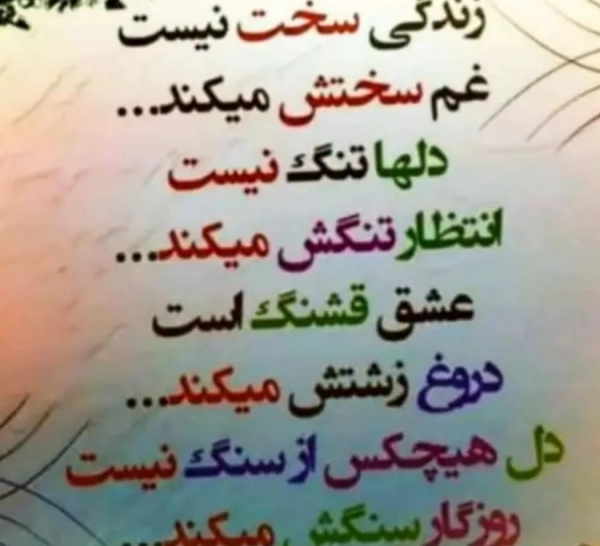 زندگی سخت نیست
غم سختش میکند...
دلها تنگ نیست
انتظار تنگش میکند...
عشق قشنگ است
دروغ زشتش میکند...
دل هیچکس از سنگ نیست
روزگار سنگش میکند...